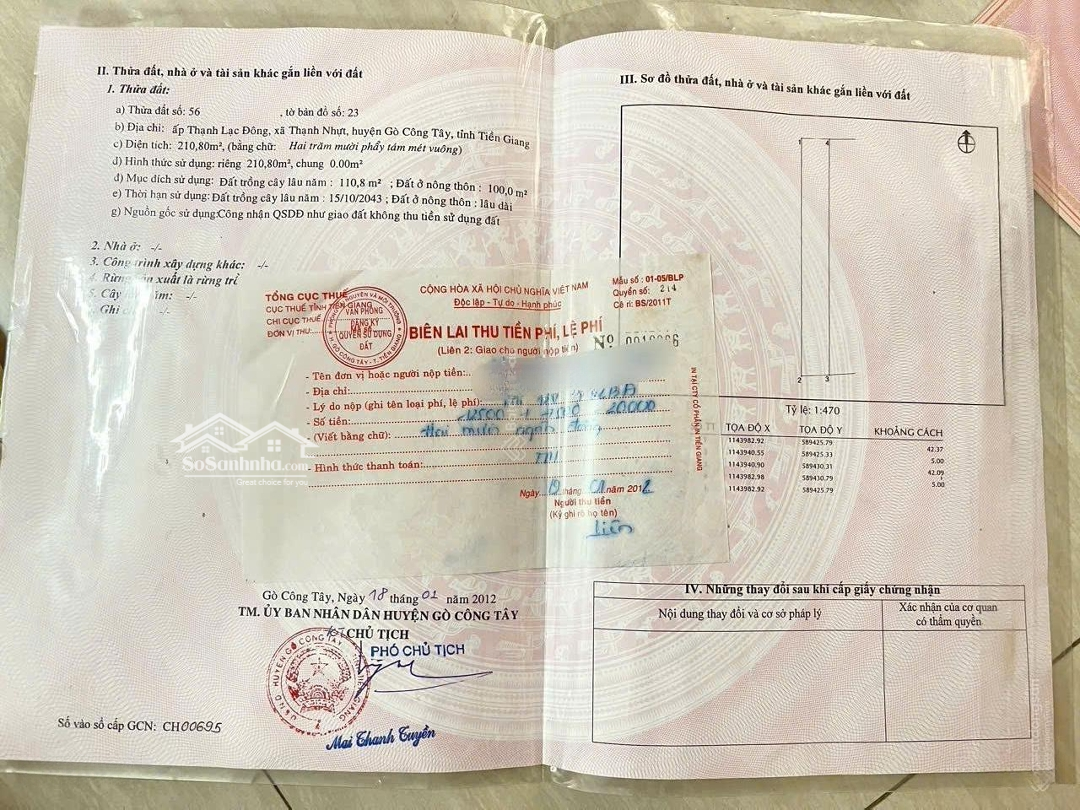 II. Thửa đất, nhà ở và tài sản khác gắn liền với đất
1. Thửa đất:
a) Thửa đất số: 56 , tờ bản đồ số: 23
b) Địa chỉ: ấp Thạnh Lạc Đông, xã Thạnh Nhựt, huyện Gò Công Tây, tỉnh Tiền Giang
c) Diện tích: 210,80m², (bằng chữ: Hai trăm mười phẩy tám mét vuông)
d) Hình thức sử dụng: riêng 210,80m², chung 0.00m²
đ) Mục đích sử dụng: Đất trồng cây lâu năm : 110,8 m² ; Đất ở nông thôn : 100,0 m²
e) Thời hạn sử dụng: Đất trồng cây lâu năm : 15/10/2043 ; Đất ở nông thôn : lâu dài
g) Nguồn gốc sử dụng:Công nhận QSDĐ như giao đất không thu tiền sử dụng đất
2. Nhà ở: -/-
3. Công trình xây dựng khác: -/-
4. Rừng sản xuất là rừng trồ
5. Cây lâu năm: -/-
Ghi chú: -/-
TỔNG CỤC THUẾ
CỤC THUẾ TỈNH TIỀN GIANG
CHI CỤC THUẾ
ĐƠN VỊ THU:
VĂN PHÒNG
ĐĂNG KÝ
QUYỀN SỬ DỤNG
ĐẤT
H. GÒ CÔNG TÂY - T. TIỀN GIANG
CỘNG HÒA XÃ HỘI CHỦ NGHĨA VIỆT NAM
Độc lập - Tự do - Hạnh phúc
Mẫu số: 01-05/BLP
Quyển số: 214
Cê ri: BS/2011T
BIÊN LAI THU TIỀN PHÍ, LỆ PHÍ
(Liên 2: Giao cho người nộp tiền)
Nº
- Tên đơn vị hoặc người nộp tiền:
- Địa chỉ:
- Lý do nộp (ghi tên loại phí, lệ phí):
- Số tiền: 20000
(Viết bằng chữ): Hai mươi ngàn đồng
- Hình thức thanh toán: TM
IN TẠI CTY CỔ PHẦN IN TIỀN GIANG
Ngày tháng 01 năm 2012
Người thu tiền
(Ký ghi rõ họ tên)
Liên
SoSanhnha.com
Great choice for you
Gò Công Tây, Ngày 18 tháng 01 năm 2012
TM. ỦY BAN NHÂN DÂN HUYỆN GÒ CÔNG TÂY
KT CHỦ TỊCH
PHÓ CHỦ TỊCH
U.B.N.D HUYỆN GÒ CÔNG TÂY
Mai Thanh Tuyền
Số vào sổ cấp GCN: CH00695
III. Sơ đồ thửa đất, nhà ở và tài sản khác gắn liền với đất
1 4
2 3
Tỷ lệ: 1:470
TỌA ĐỘ X TỌA ĐỘ Y KHOẢNG CÁCH
1143982.92 589425.79
42.37
1143940.55 589425.33
5.00
1143940.90 589430.31
42.09
1143982.98 589430.79
5.00
1143982.92 589425.79
IV. Những thay đổi sau khi cấp giấy chứng nhận
Nội dung thay đổi và cơ sở pháp lý
Xác nhận của cơ quan
có thẩm quyền